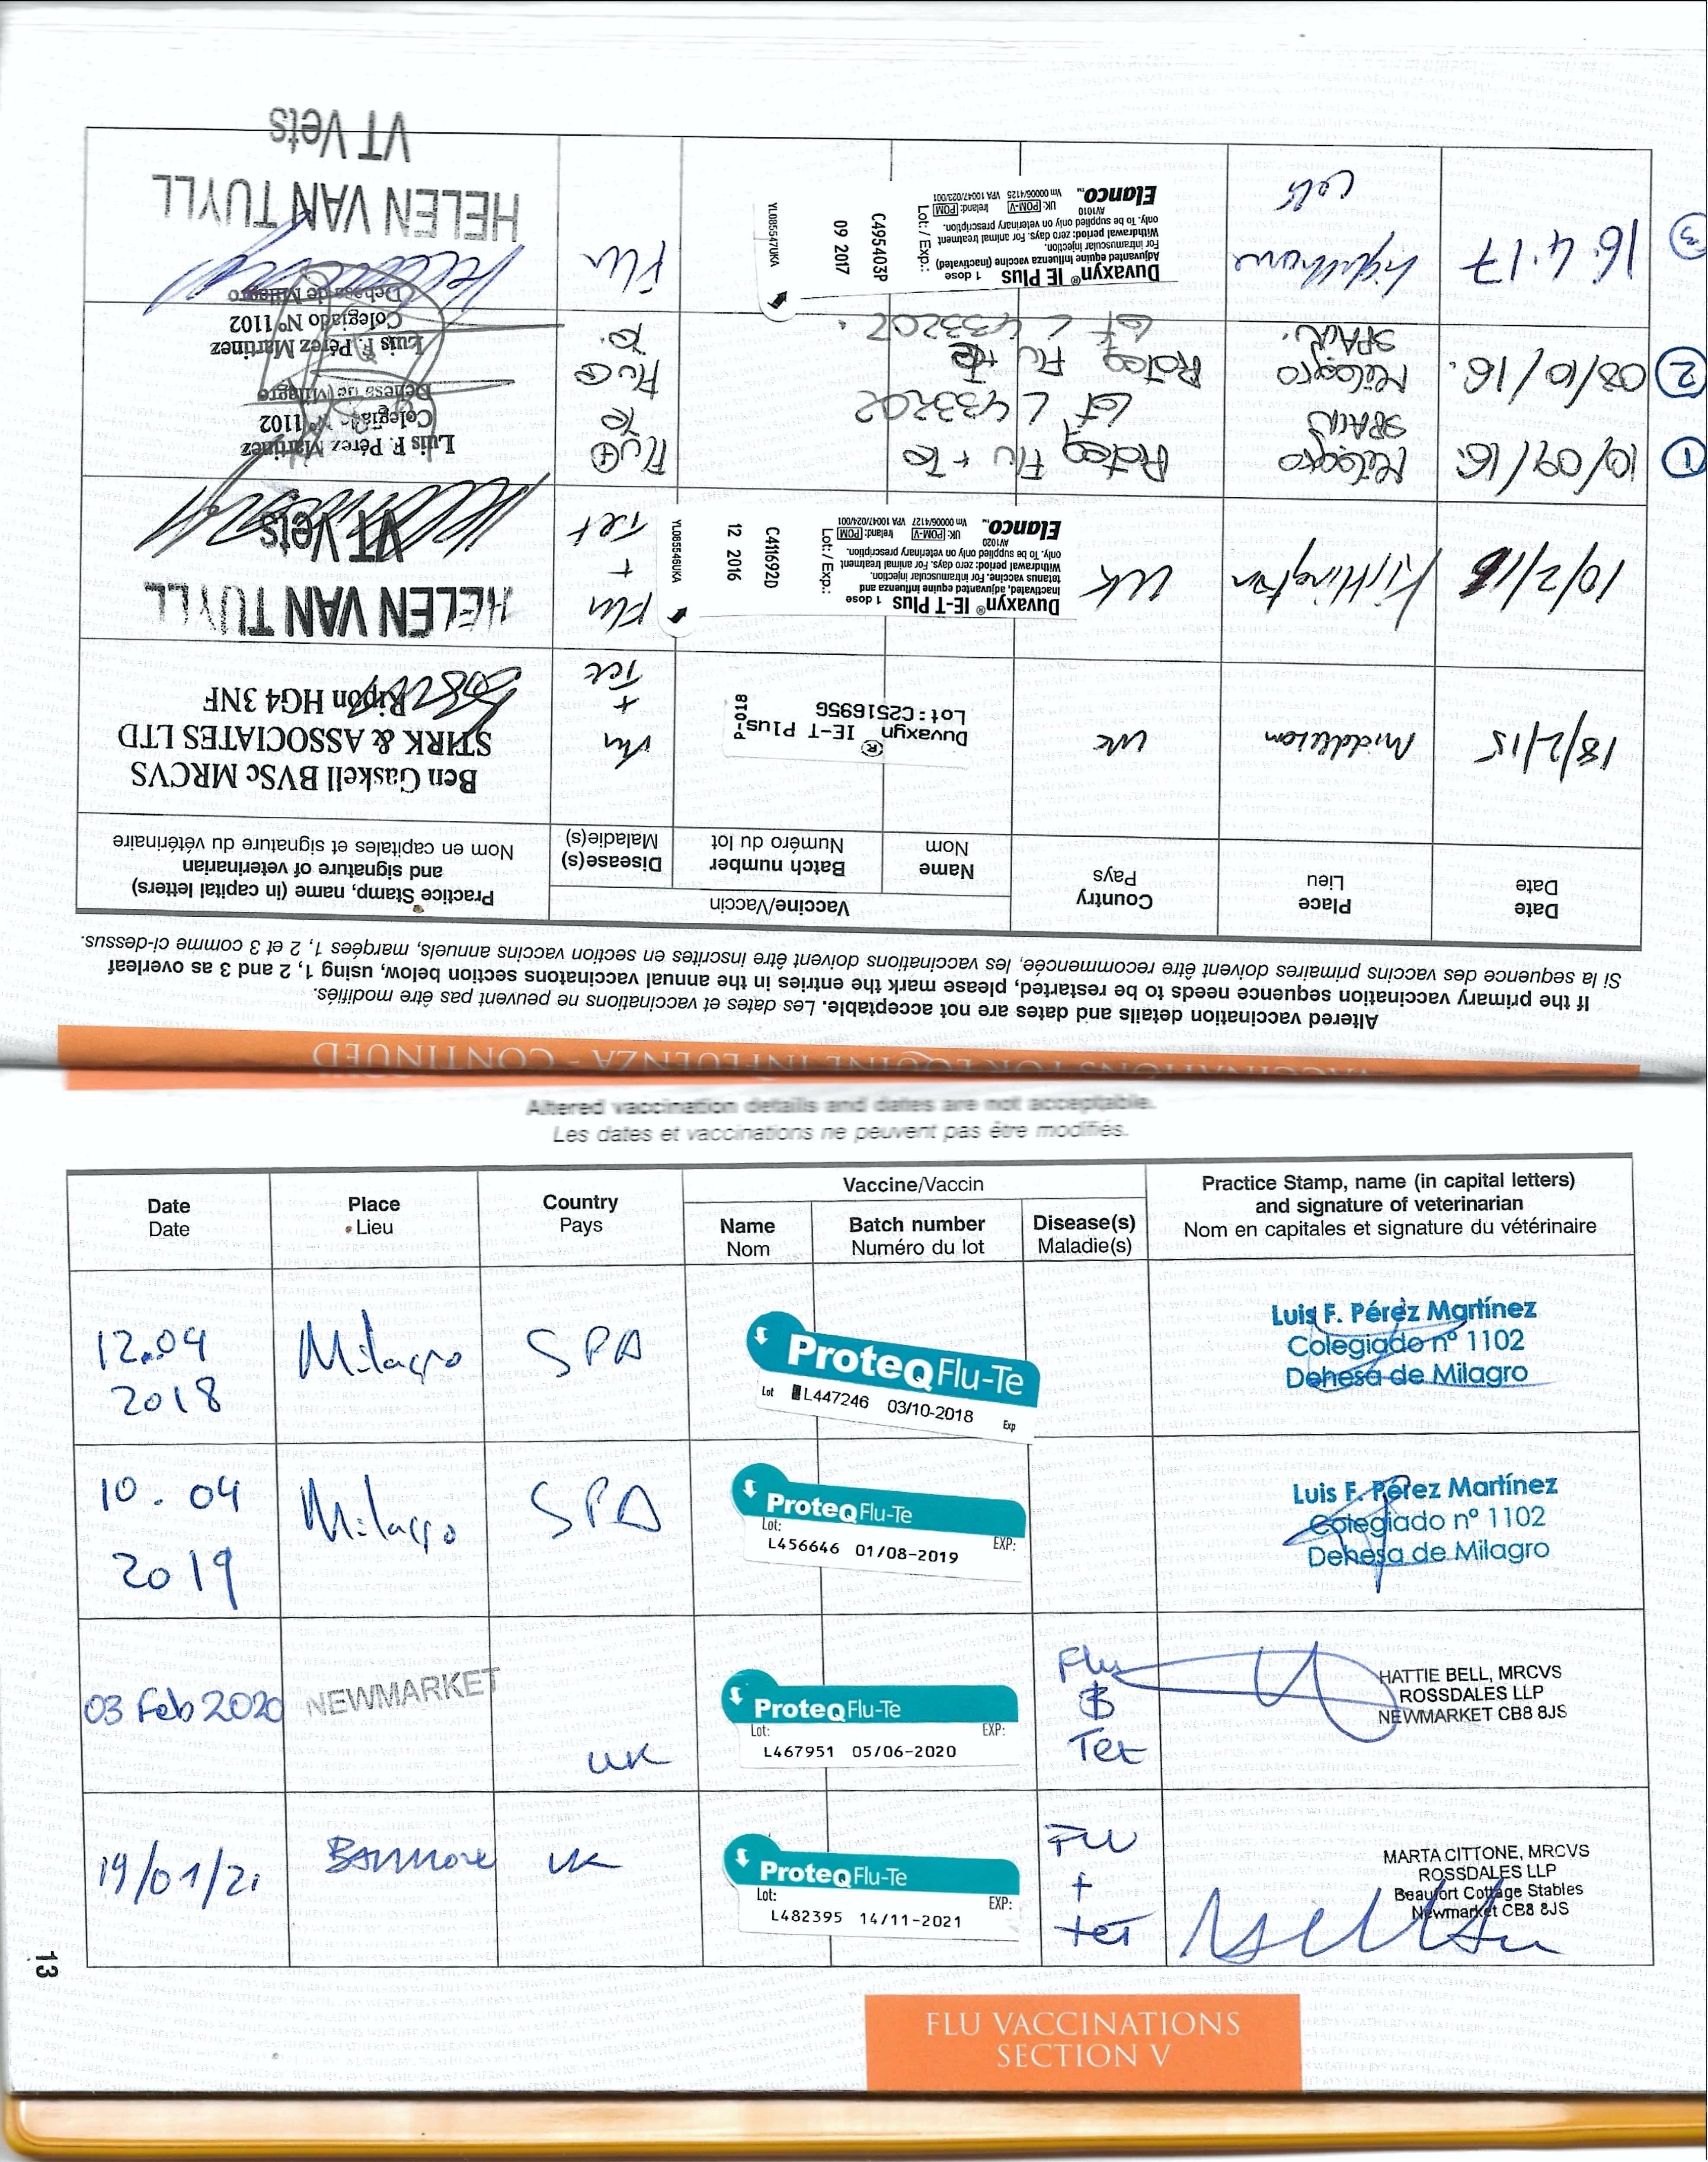 VACCINATIONS FOR EQUINE INFLUENZA - CONTINUED
Altered vaccination details and dates are not acceptable. Les dates et vaccinations ne peuvent pas être modifiés.
If the primary vaccination sequence needs to be restarted, please mark the entries in the annual vaccinatons section below, using 1, 2 and 3 as overleaf
Si la sequence des vaccins primaires doivent être recommencée, les vaccinations doivent être inscrites en section vaccins annuels, marqées 1, 2 et 3 comme ci-dessus.
Date
Date
Place
Lieu
Country
Pays
Vaccine/Vaccin
Name
Nom
Batch number
Numéro du lot
Disease(s)
Maladie(s)
Practice Stamp, name (in capital letters)
and signature of veterinarian
Nom en capitales et signature du vétérinaire
18/2/15
Middleham
UK
Duvaxyn® IE-T Plus
Lot:C251695G
P-018
Flu
+
Tet
Ben Gaskell BVSc MRCVS
STIRK & ASSOCIATES LTD
Ripon HG4 3NF
10/2/16
Kirtlington
UK
Duvaxyn® IE-T Plus 1 dose
Inactivated, adjuvanted equine influenza and
tetanus vaccine. For intramuscular injection.
Withdrawal period: zero days. For animal treatment
only. To be supplied only on veterinary prescription.
AV1020 UK: POM-V Ireland: POM
Elanco™ Vm 00006/4127 VPA 10047/024/001
Lot: / Exp.:
C411692D
12 2016
YL085546UKA
Flu
+
Tet
HELEN VAN TUYLL
VT Vets
1
10/09/16.
Milagro
SPAIN
Proteq Flu + Te
Lot L433202
Flu +
Te
Luis F. Pérez Martínez
Colegiado Nº 1102
Dehesa de Milagro
2
08/10/16.
Milagro
SPAIN.
Proteq Flu + Te
Lot L433202.
Flu +
Te.
Luis F. Pérez Martínez
Colegiado Nº 1102
Dehesa de Milagro
3
16.4.17
Duvaxyn® IE Plus 1 dose
Adjuvanted equine influenza vaccine (inactivated)
For intramuscular injection.
Withdrawal period: zero days. For animal treatment
only. To be supplied only on veterinary prescription.
AV1010 UK: POM-V Ireland: POM
Elanco™ Vm 00006/4125 VPA 10047/023/001
Lot: / Exp.:
C495403P
09 2017
YL085547UKA
Flu
HELEN VAN TUYLL
VT Vets
Altered vaccination details and dates are not acceptable.
Les dates et vaccinations ne peuvent pas être modifiés.
Date
Date
Place
Lieu
Country
Pays
Vaccine/Vaccin
Name
Nom
Batch number
Numéro du lot
Disease(s)
Maladie(s)
Practice Stamp, name (in capital letters)
and signature of veterinarian
Nom en capitales et signature du vétérinaire
12.04
2018
Milagro
SPA
ProteQ Flu-Te
Lot L447246 03/10-2018 Exp
Luis F. Pérez Martínez
Colegiado nº 1102
Dehesa de Milagro
10.04
2019
Milagro
SPA
ProteQ Flu-Te
Lot: EXP:
L456646 01/08-2019
Luis F. Pérez Martínez
Colegiado nº 1102
Dehesa de Milagro
03 Feb 2020
NEWMARKET
UK
ProteQ Flu-Te
Lot: EXP:
L467951 05/06-2020
Flu
&
Tet
HATTIE BELL, MRCVS
ROSSDALES LLP
NEWMARKET CB8 8JS
19/01/21
UK
ProteQ Flu-Te
Lot: EXP:
L482395 14/11-2021
FLU
+
tet
MARTA CITTONE, MRCVS
ROSSDALES LLP
Beaufort Cottage Stables
Newmarket CB8 8JS
13
FLU VACCINATIONS
SECTION V